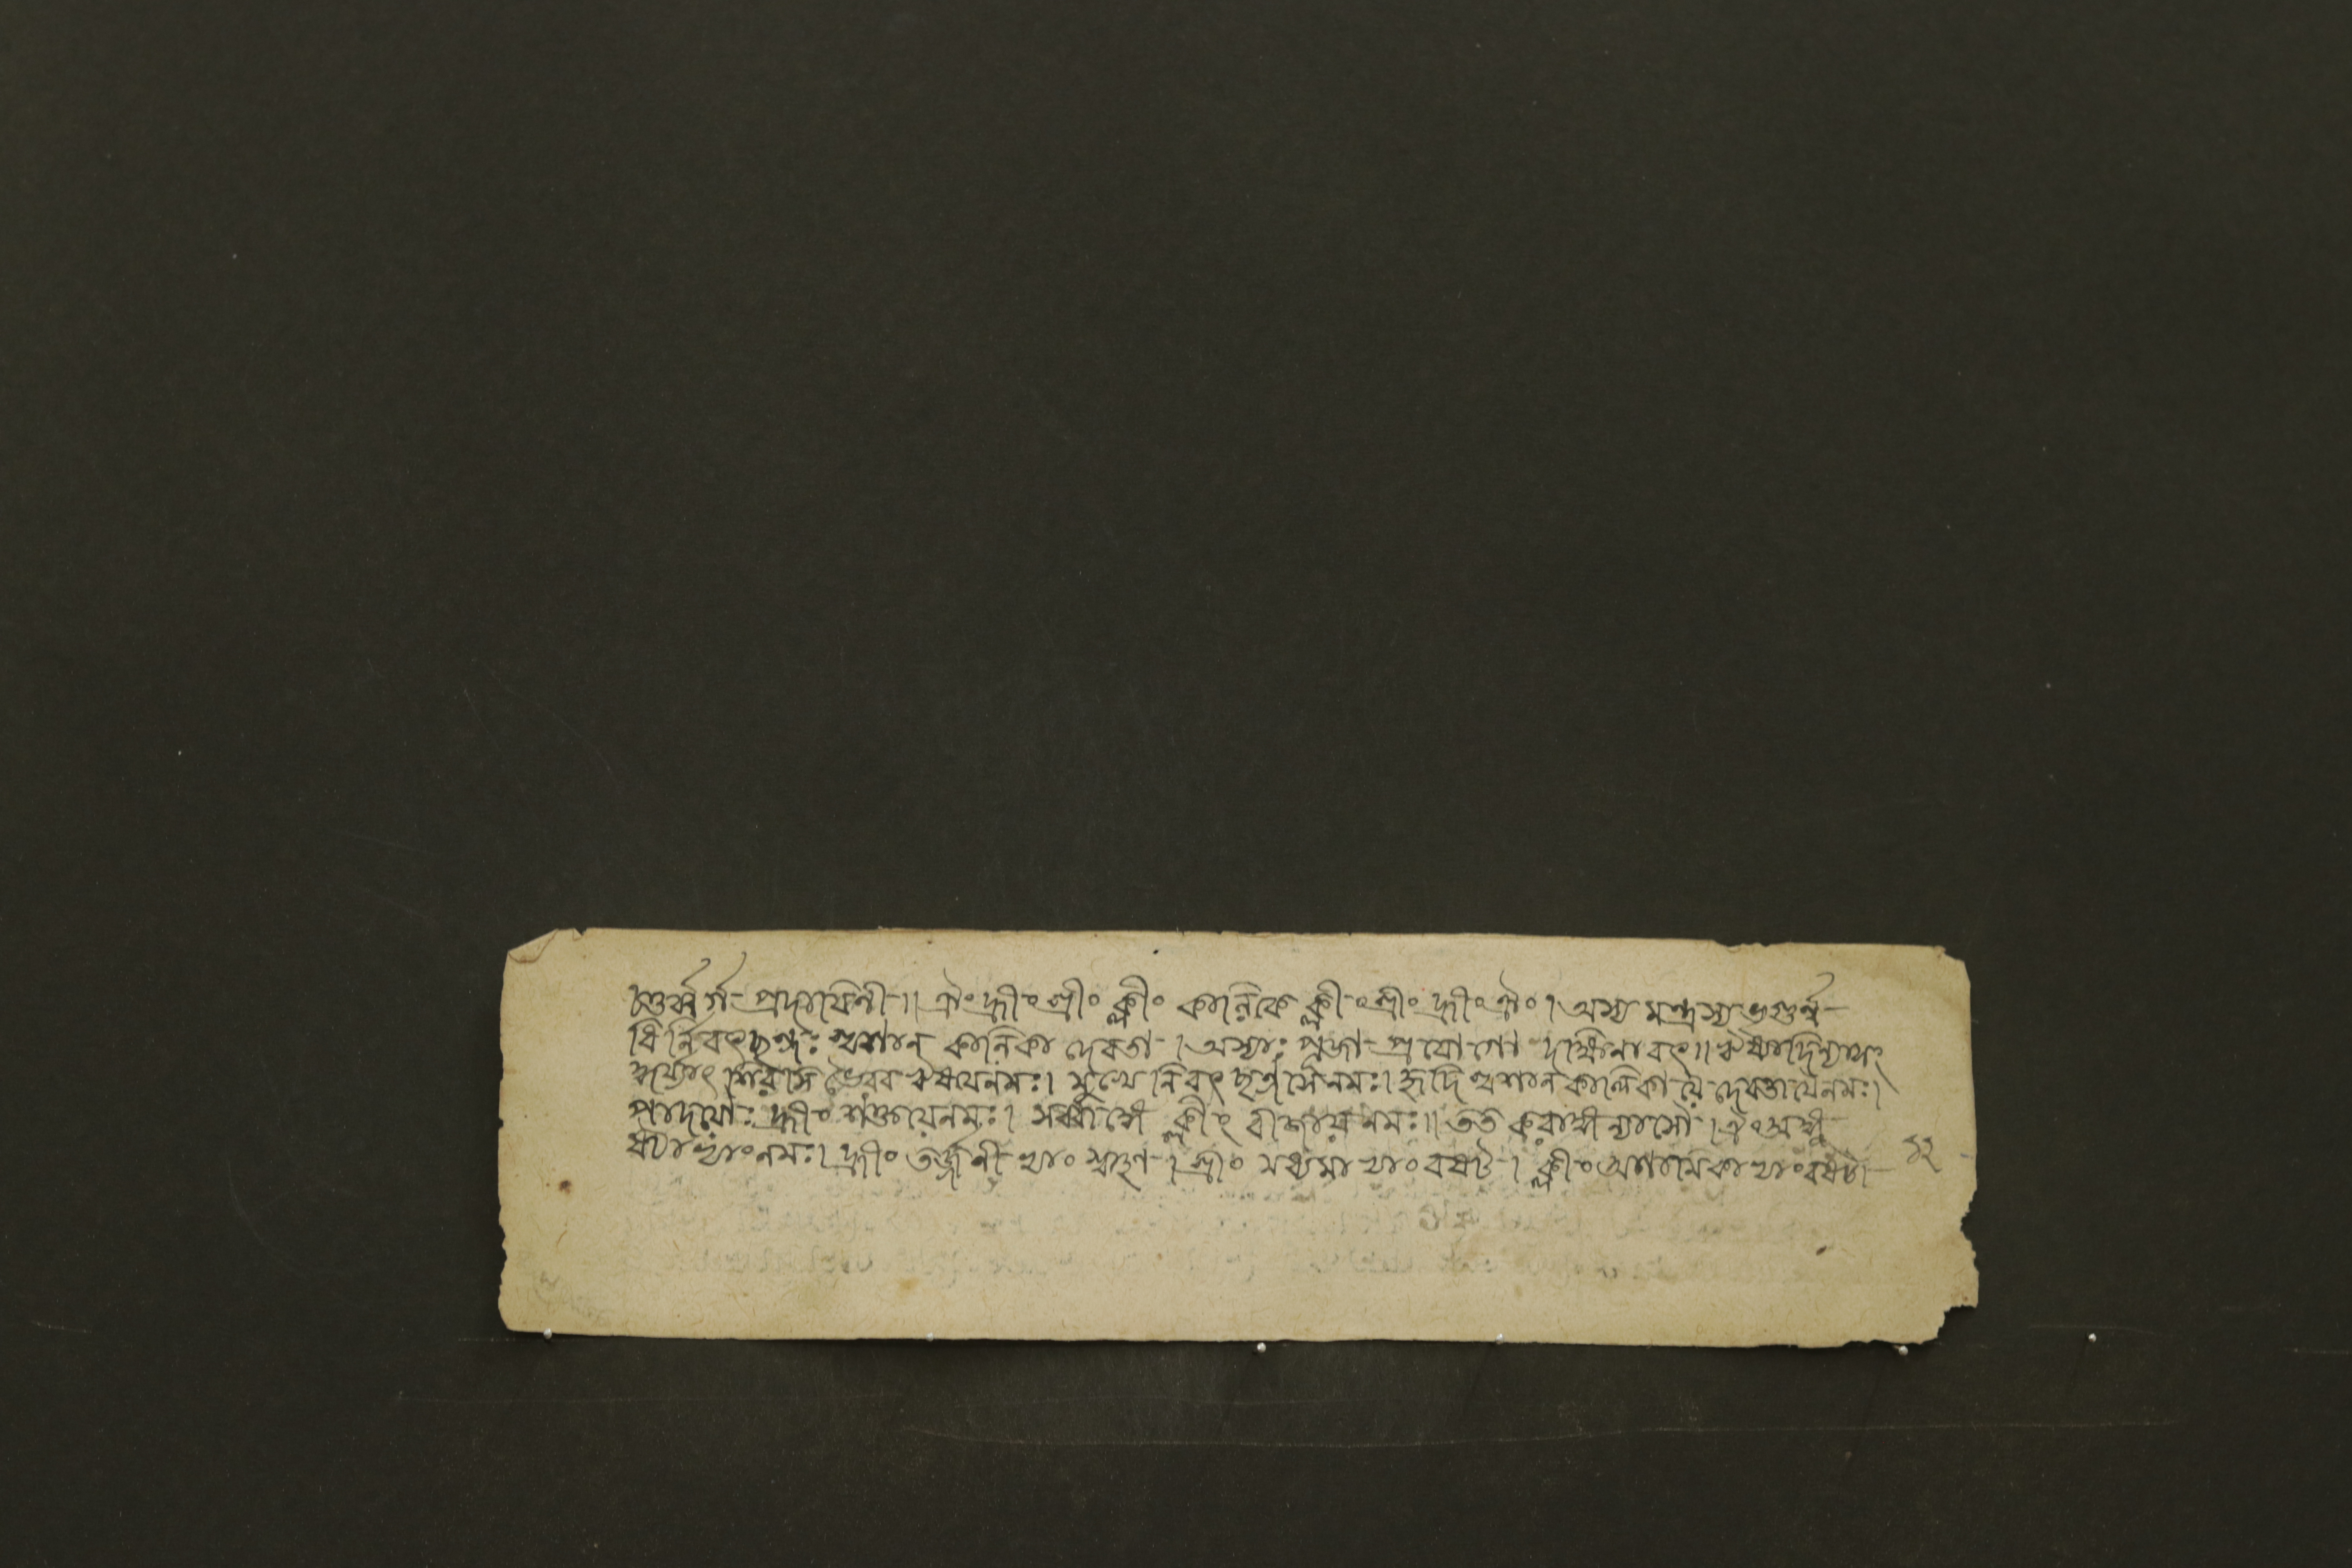 তুর্ব্বর্গ প্রদায়িনী ॥ ঐং হ্রীং শ্রীং ক্লীং কালিকে ক্লীং শ্রীং হ্রীং ঐং । অস্য মন্ত্রস্য ভৃগুর্ঋ
ষি র্নিবৃৎছন্দঃ শ্মশান কালিকা দেবতা । অস্যাঃ পূজা প্রয়োগো দক্ষিনাবৎ ॥ ঋষ্যাদিন্যাসং
কুর্য্যাৎ শিরসি ভৈরব ঋষয়েনমঃ । মুখে নিবৃৎ ছন্দসেনমঃ । হৃদি শ্মশান কালিকায়ৈ দেবতায়ৈনমঃ ।
পাদয়োঃ হ্রীং শক্তয়েনমঃ । সর্ব্বাঙ্গে ক্লীং বীজায় নমঃ ॥ তত করাঙ্গন্যাসৌ । ঐং অঙ্গু
ষ্ঠাভ্যাংনমঃ । হ্রীং তর্জ্জনীভ্যাং স্বাহা । শ্রীং মধ্যমাভ্যাং বষট । ক্লীং অনামিকাভ্যাং বষট
১২